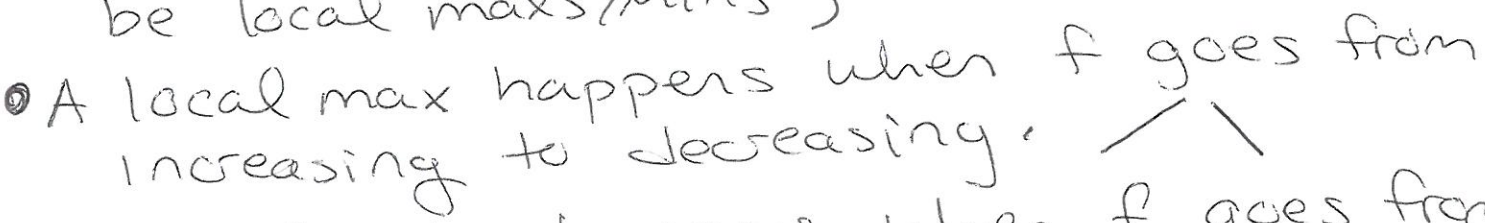 be local maxs/mins)
• A local max happens when f goes from
increasing to decreasing.
f goes from